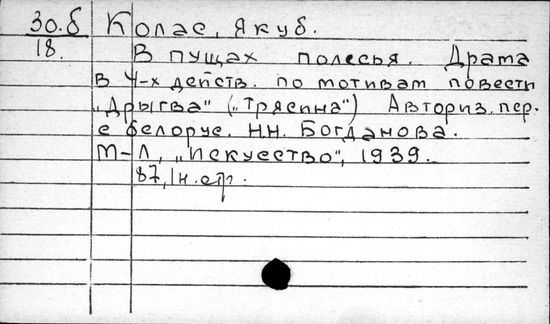 30.б Колас, Якуб.
18.
В пущах полесья. Драма
в 4-х действ. по мотивам повести
„Дрыгва" („Трясина") Авториз. пер.
с белорус. Н.Н. Богданова.
М-Л, „Искусство", 1939.
87, 1н. стр.